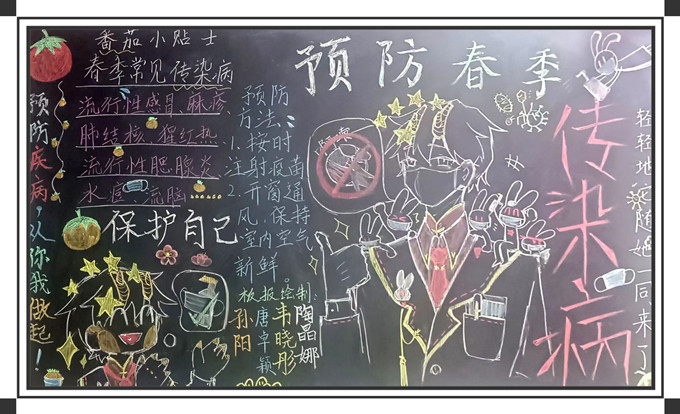 预防春季
传染病
轻轻地它随她一同来了
番茄小贴士
春季常见传染病
流行性感冒、麻疹、
肺结核、猩红热
流行性腮腺炎
水痘、流脑
保护自己
预防疾病，从你我做起！
预防
方法：
1.按时
注射疫苗
2.开窗通
风，保持
室内空气
新鲜。
板报绘制：
陶晶娜
韦晓彤
唐卓颖
孙阳